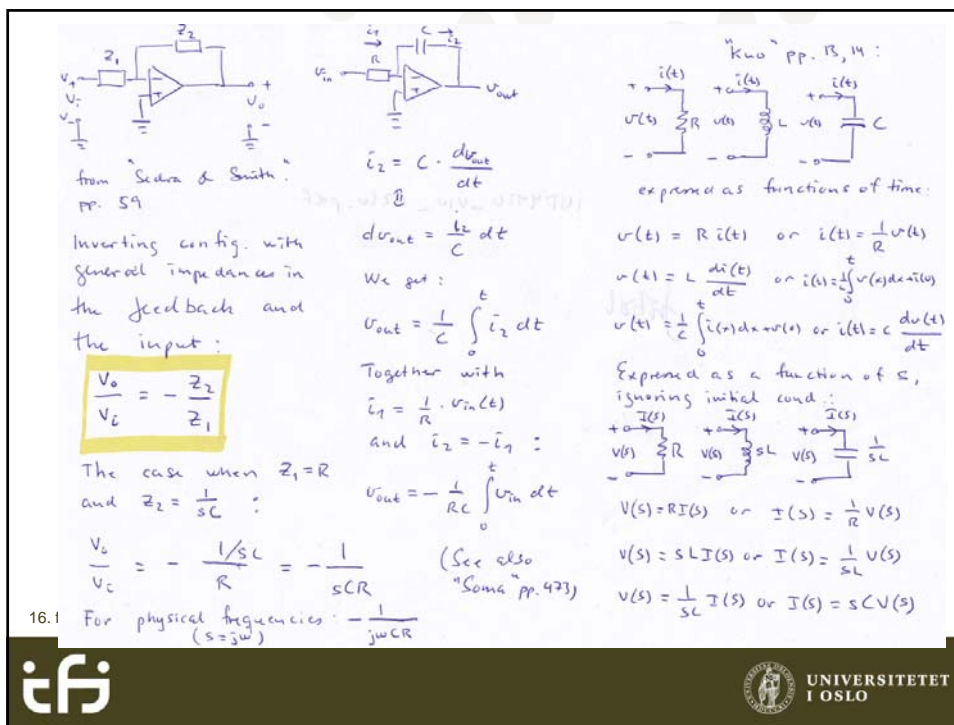 Z₁
Z₂
V+
Vi
V-
+
Vo
-
from "Sedra & Smith".
pp. 59
Inverting config. with
general impedances in
the feedback and
the input:
Vo/Vi = - Z₂/Z₁
The case when Z₁ = R
and Z₂ = 1/sC :
Vo/Vi = - (1/sC)/R = - 1/sCR
For physical frequencies: - 1/jωCR
(s=jω)
i₁ → C → i₂
R
vin
vout
i₂ = C · dvout/dt
⇕
dvout = i₂/C dt
We get:
vout = 1/C ∫₀ᵗ i₂ dt
Together with
i₁ = 1/R · vin(t)
and i₂ = -i₁ :
vout = - 1/RC ∫₀ᵗ vin dt
(See also
"Soma" pp. 473)
"Kuo" pp. 13, 14:
i(t) i(t) i(t)
+ + +
v(t) R v(t) L v(t) C
- - -
expressed as functions of time:
v(t) = R i(t) or i(t) = 1/R v(t)
v(t) = L di(t)/dt or i(t) = 1/L ∫₀ᵗ v(x)dx + i(0)
v(t) = 1/C ∫₀ᵗ i(x)dx + v(0) or i(t) = C dv(t)/dt
Expressed as a function of s,
ignoring initial cond.:
I(s) I(s) I(s)
+ + +
V(s) R V(s) sL V(s) 1/sC
- - -
V(s) = RI(s) or I(s) = 1/R V(s)
V(s) = sLI(s) or I(s) = 1/sL V(s)
V(s) = 1/sC I(s) or I(s) = sCV(s)
16. f
ifi
UNIVERSITETET
I OSLO